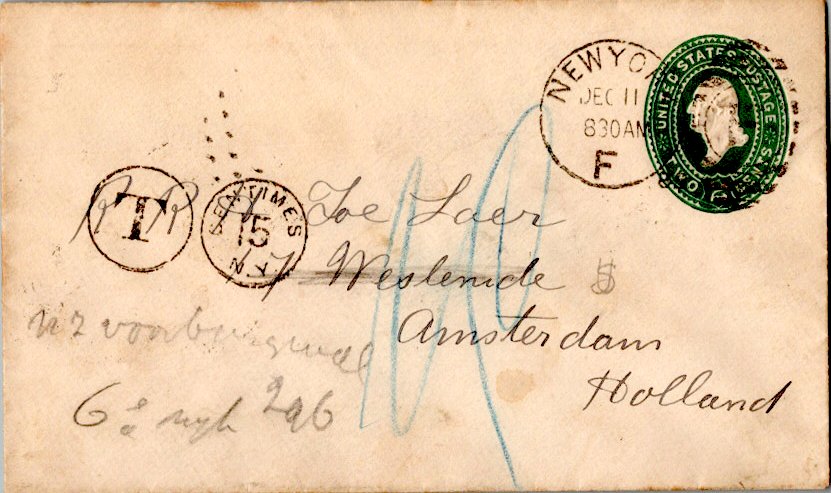 NEW YO
DEC 11
830AM
F
UNITED STATES POSTAGE
TWO CENTS
T
CENTIMES
15
N.Y.
Toe Laer
17 Westeinde
Amsterdam
Holland
NZ voorburgwal
296